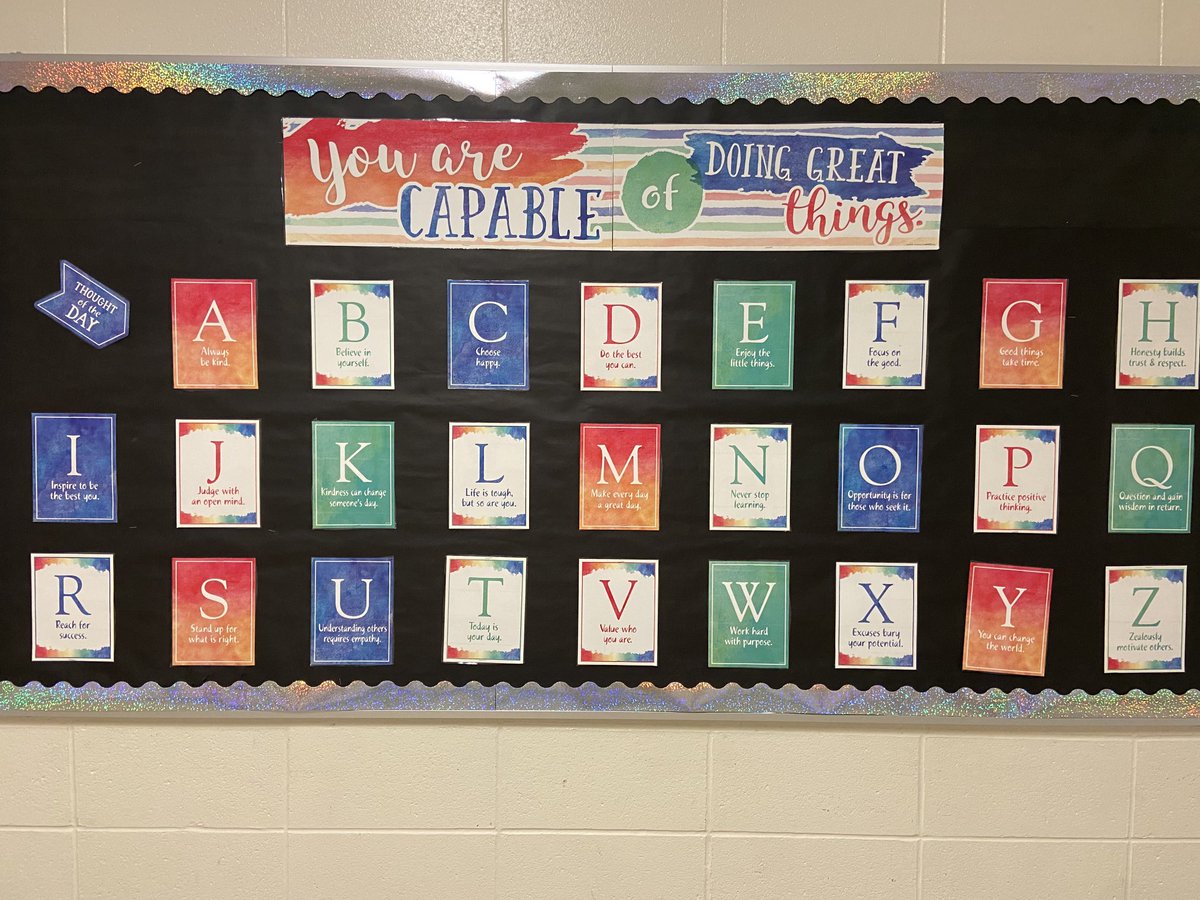 You are
CAPABLE
of
DOING GREAT
things.
THOUGHT
of the
DAY
A
Always
be kind.
B
Believe in
yourself.
C
Choose
happy.
D
Do the best
you can.
E
Enjoy the
little things.
F
Focus on
the good.
G
Good things
take time.
H
Honesty builds
trust & respect.
I
Inspire to be
the best you.
J
Judge with
an open mind.
K
Kindness can change
someone's day.
L
Life is tough,
but so are you.
M
Make every day
a great day.
N
Never stop
learning.
O
Opportunity is for
those who seek it.
P
Practice positive
thinking.
Q
Question and gain
wisdom in return.
R
Reach for
success.
S
Stand up for
what is right.
U
Understanding others
requires empathy.
T
Today is
your day.
V
Value who
you are.
W
Work hard
with purpose.
X
Excuses bury
your potential.
Y
You can change
the world.
Z
Zealously
motivate others.